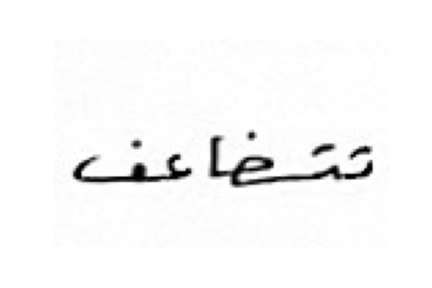 تتضاعف